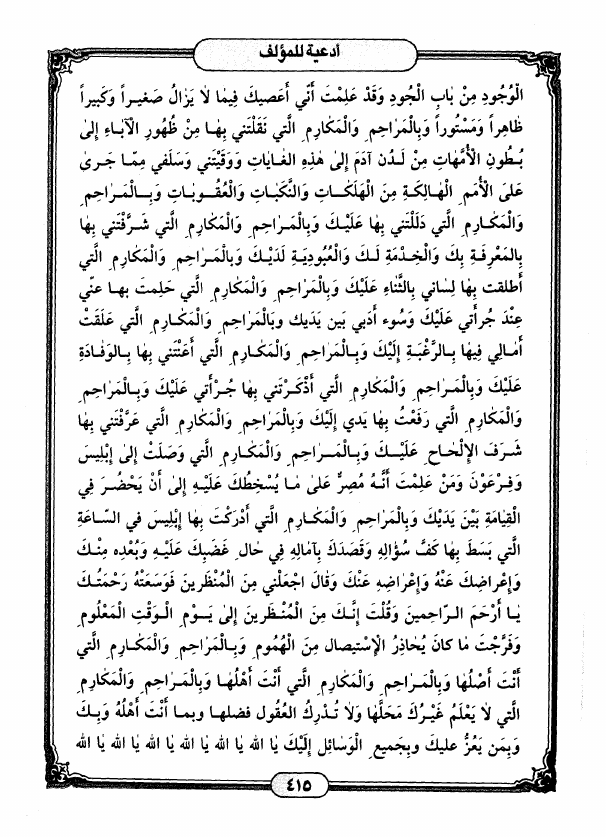 أدعية للمؤلف
الْوُجُودِ مِنْ بٰابِ الْجُودِ وَقَدْ عَلِمْتَ أَنّي أَعْصيكَ فيمٰا لاٰ يَزٰالُ صَغيراً وَكَبيراً
ظٰاهِراً وَمَسْتُوراً وَبِالْمَرٰاحِمِ وَالْمَكٰارِمِ الَّتي نَقَلْتَني بِهٰا مِنْ ظُهُورِ الْآبٰاءِ إِلىٰ
بُطُونِ الْأُمَّهٰاتِ مِنْ لَدُنْ آدَمَ إِلىٰ هٰذِهِ الغٰايٰاتِ وَوَقَيْتَني وَسَلَفي مِمّٰا جَرىٰ
عَلىَ الْأُمَمِ الْهٰالِكَةِ مِنَ الْهَلَكٰاتِ وَالنَّكَبٰاتِ وَالْعُقُوبٰاتِ وَبِالْمَرٰاحِمِ
وَالْمَكٰارِمِ الَّتي دَلَلْتَني بِهٰا عَلَيْكَ وَبِالْمَرٰاحِمِ وَالْمَكٰارِمِ الَّتي شَرَّفْتَني بِهٰا
بِالمَعْرِفَةِ بِكَ وَالْخِدْمَةِ لَكَ وَالْعُبُودِيَةِ لَدَيْكَ وَبِالْمَرٰاحِمِ وَالْمَكٰارِمِ الَّتي
أَطلقت بِهٰا لِسٰاني بِالثَّنٰاءِ عَلَيْكَ وَبِالْمَرٰاحِمِ وَالْمَكٰارِمِ الَّتي حَلِمتَ بهـا عنّي
عِنْدَ جُرأَتي عَلَيْكَ وَسُوء أَدَبي بَين يَدَيك وبَالمَرٰاحِمِ وَالْمَكٰارِمِ الَّتي عَلَقَتْ
آمٰالي فيهٰا بِالرَّغْبَةِ إِلَيْكَ وَبِالْمَرٰاحِمِ وَالْمَكٰارِمِ الَّتي أَعَنْتَني بِهٰا بِالوَفٰادَةِ
عَلَيْكَ وَبِالْمَرٰاحِمِ وَالْمَكٰارِمِ الَّتي أَذْكَرْتَني بِهٰا جُرْأَتي عَلَيْكَ وَبِالْمَرٰاحِمِ
وَالْمَكٰارِمِ الَّتي رَفَعْتُ بِهٰا يَدي إِلَيْكَ وَبِالْمَرٰاحِمِ وَالْمَكٰارِمِ الَّتي عَرَّفْتَني بِهٰا
شَرَفَ الإِلْحٰاحِ عَلَيْكَ وَبِالْمَرٰاحِمِ وَالْمَكٰارِمِ الَّتي وَصَلَتْ إِلىٰ إِبْليسَ
وَفِرْعَوْنَ وَمَنْ عَلِمْتَ أَنَّهُ مُصِرٌّ عَلىٰ مٰا يُسْخِطُكَ عَلَيْهِ إِلىٰ أَنْ يَحْضُرَ فِي
الْقِيٰامَةِ بَيْنَ يَدَيْكَ وَبِالْمَرٰاحِمِ وَالْمَكٰارِمِ الَّتي أَدْرَكَتْ بِهٰا إِبْليسَ في السّٰاعَةِ
الَّتي بَسَطَ بِهٰا كَفَّ سُؤٰالِهِ وَقَصَدَكَ بِآمٰالِهِ في حٰالِ غَضَبِكَ عَلَيْهِ وَبُعْدِه مِنْكَ
وَإِعْرٰاضِكَ عَنْهُ وَإِعْرٰاضِهِ عَنْكَ وَقٰالَ اجْعَلْني مِنَ الْمُنْظَرينَ فَوَسَعَتْهُ رَحْمَتُكَ
يٰا أَرْحَمَ الرّٰاحِمينَ وَقُلْتَ إِنَّكَ مِنَ الْمُنْظَرينَ إِلىٰ يَوْمِ الْوَقْتِ الْمَعْلُومِ
وَفَرَّجْتَ مٰا كٰانَ يُحٰاذِرُ الْإِستيصال مِنَ الْهُمُومِ وَبِالْمَرٰاحِمِ وَالْمَكٰارِمِ الَّتي
أَنْتَ أَصْلُهٰا وَبِالْمَرٰاحِمِ وَالْمَكٰارِمِ الَّتي أَنْتَ أَهْلُهٰا وَبِالْمَرٰاحِمِ وَالْمَكٰارِمِ
الَّتي لاٰ يَعْلَمُ غَيْرُكَ مَحَلَّهٰا وَلاٰ تُدْرِكُ العُقُول فضلهـا وبمـا أَنْتَ أَهْلُهُ وَبِكَ
وَبِمَن يَعُزُّ عليكَ وبِجَميعِ الْوَسٰائِلِ إِلَيْكَ يٰا الله يٰا الله يٰا الله يٰا الله يٰا الله يٰا الله
٤١٥